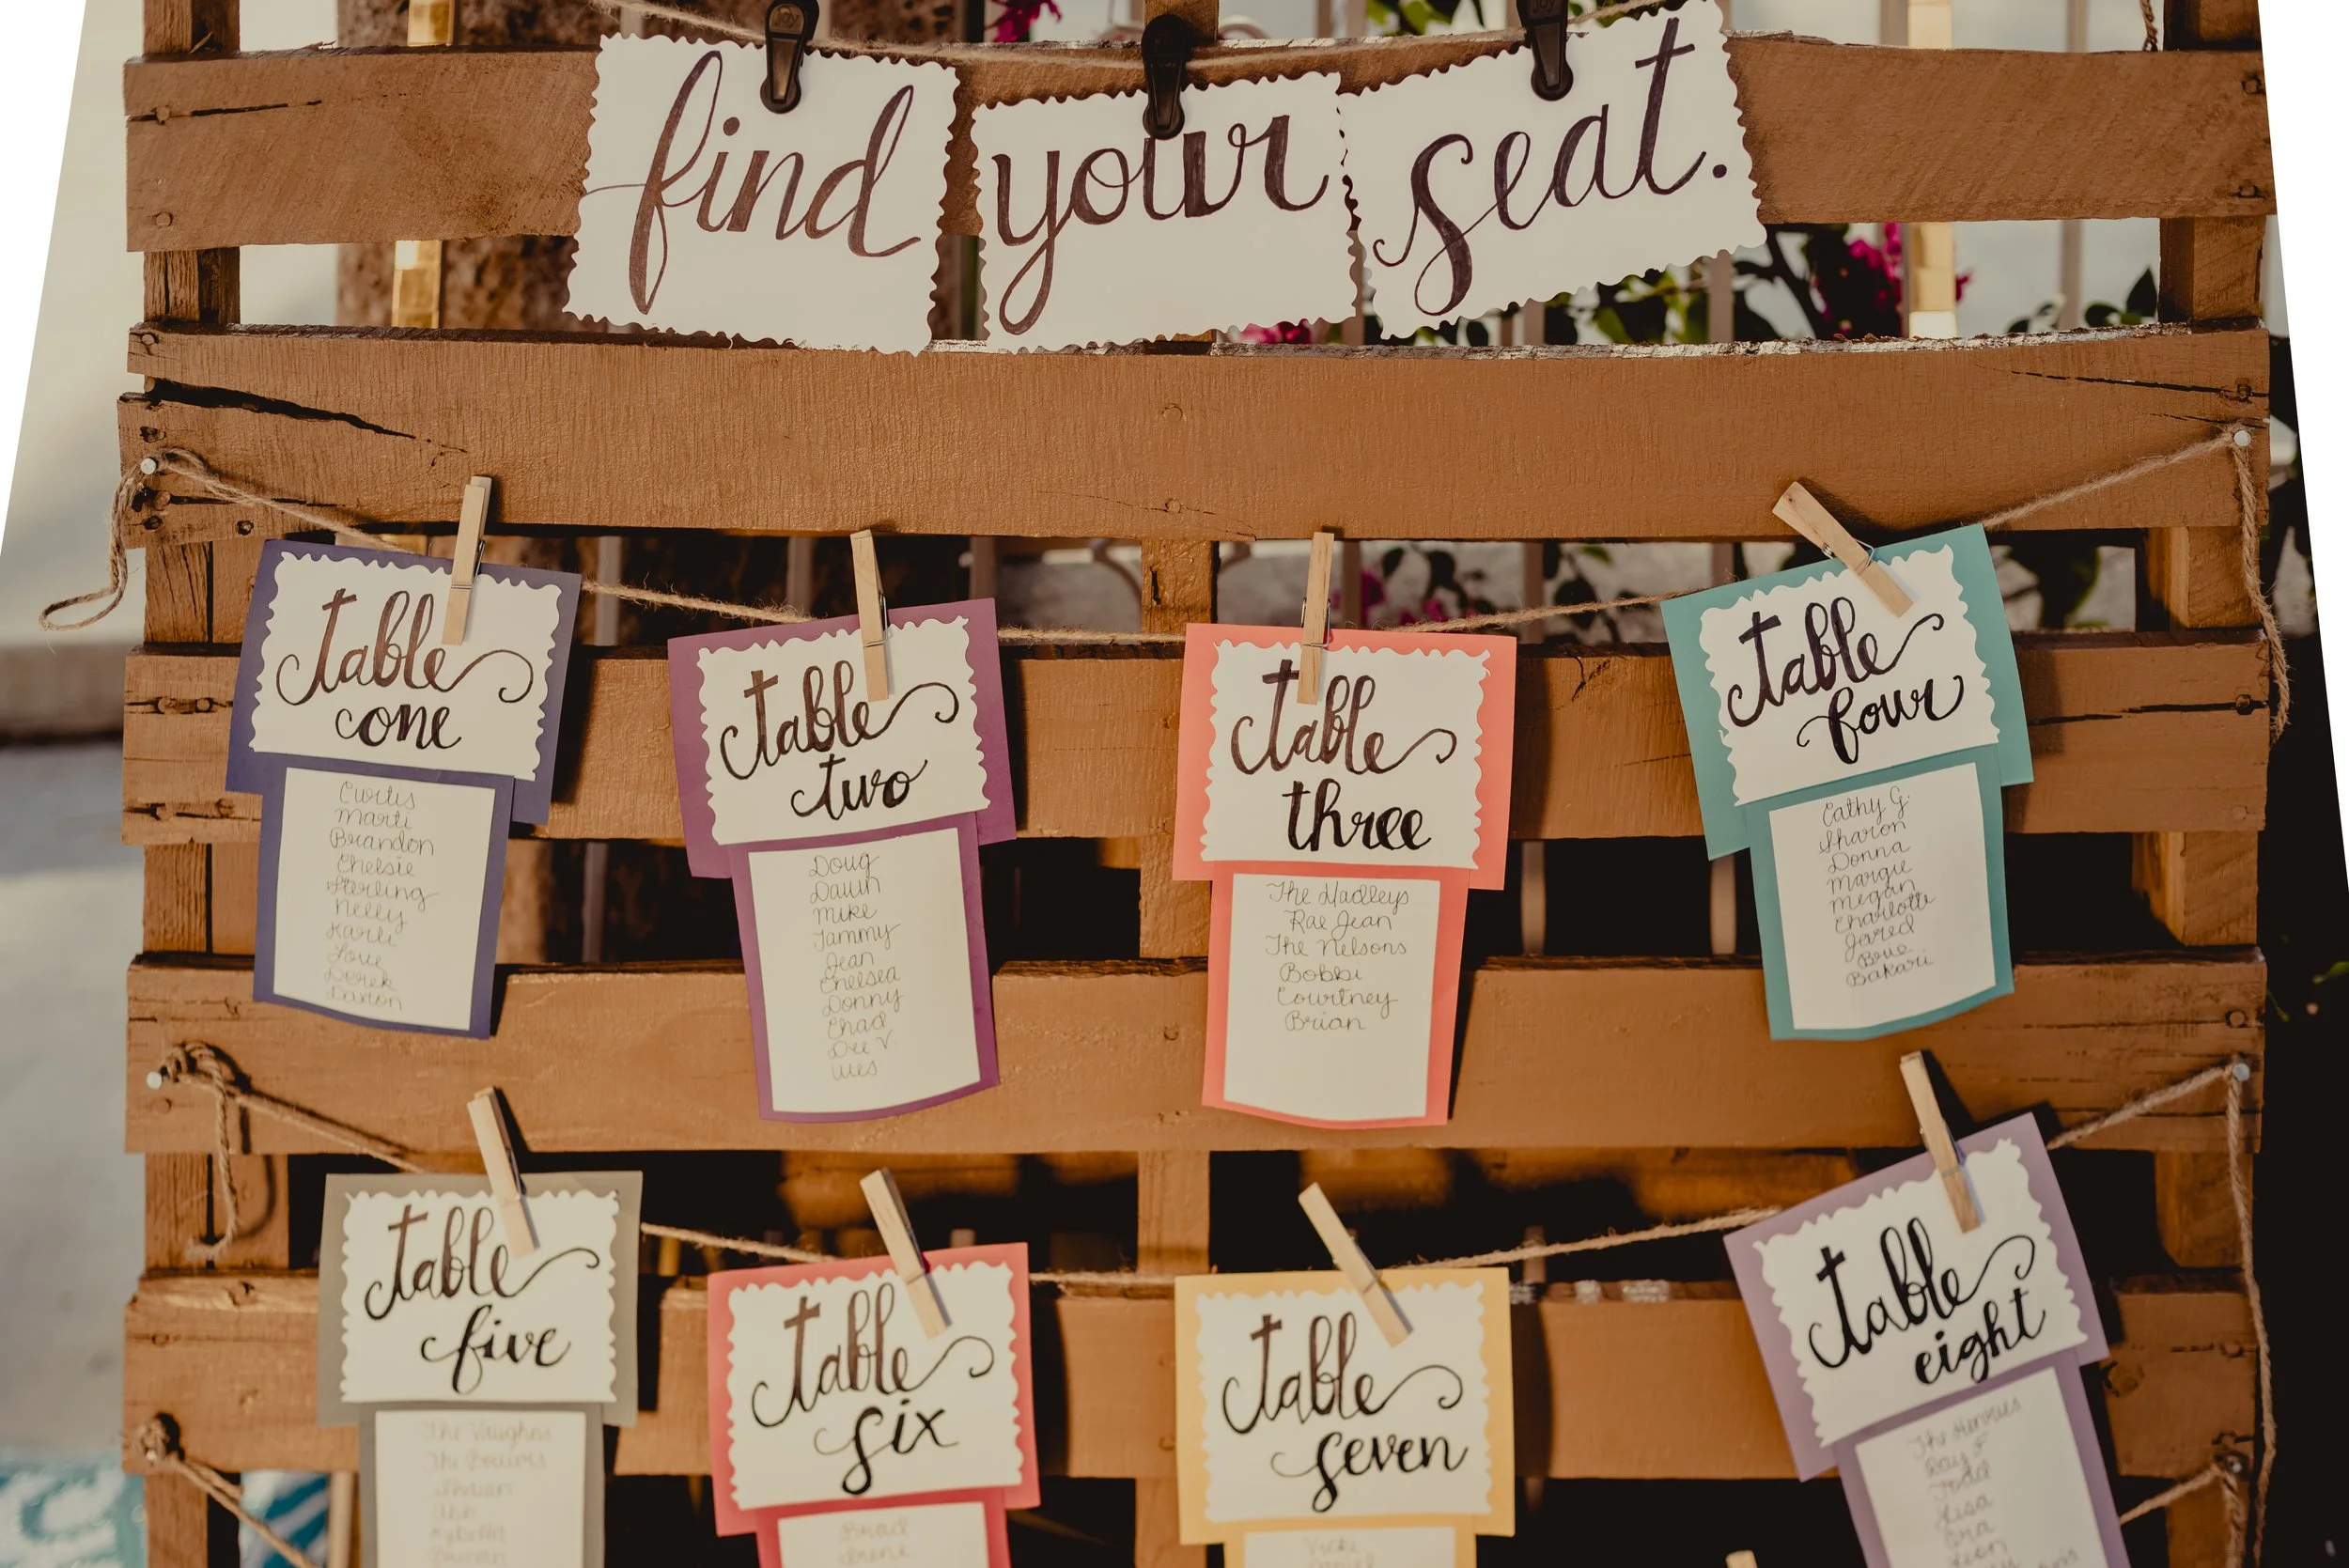 find your seat.
table
one
Curtis
Marti
Brandon
Chelsie
Sterling
Nelly
Karli
Love
Derek
Daxton
table
two
Doug
Dawn
Mike
Tammy
Jean
Chelsea
Donny
Chad
Dee V
Wes
table
three
The Hadleys
Rae Jean
The Nelsons
Bobbi
Courtney
Brian
table
four
Cathy G.
Sharon
Donna
Margie
Megan
Charlotte
Jared
Brue
Bakari
table
five
The Vaughns
The
table
six
Brad
Irene
table
seven
Vicki
Daniel
table
eight
The Henries
Day F
Todd
Lisa
Ora
Leon